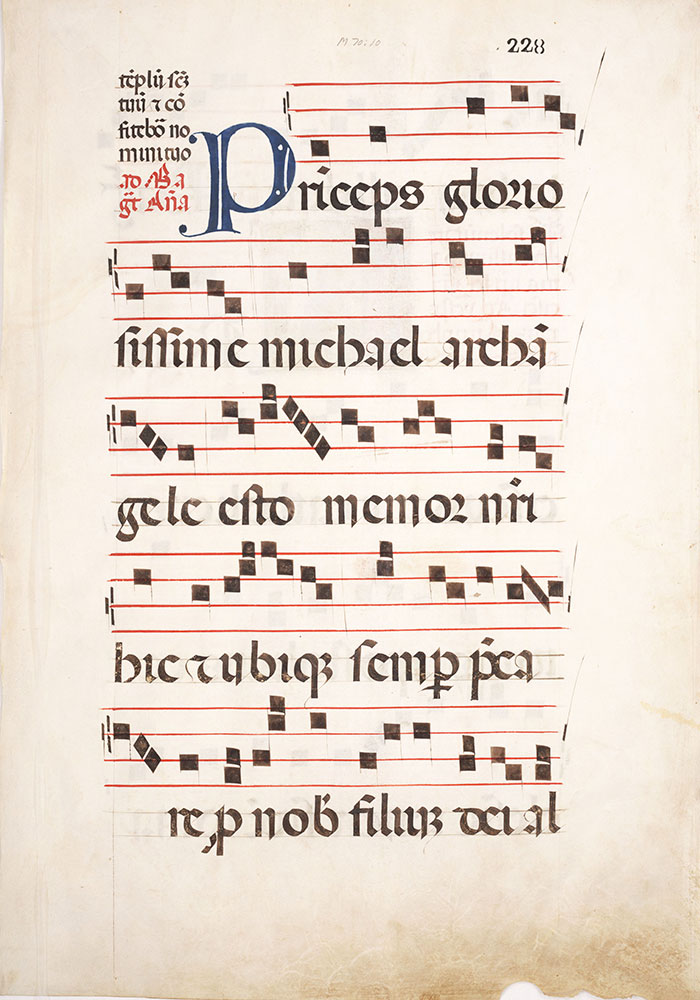 M 70.10
228
tẽplũ sc̃
tuũ ⁊ cõ
fitebõr no
mini tuo
ad Ma
gt̃ Añа
Prĩceps glorio
sissime michael archã
gele esto memor nr̃i
hic ⁊ vbiqꝫ semꝑ p̃ca
re ꝓ nob̃ filiuꝫ dei al